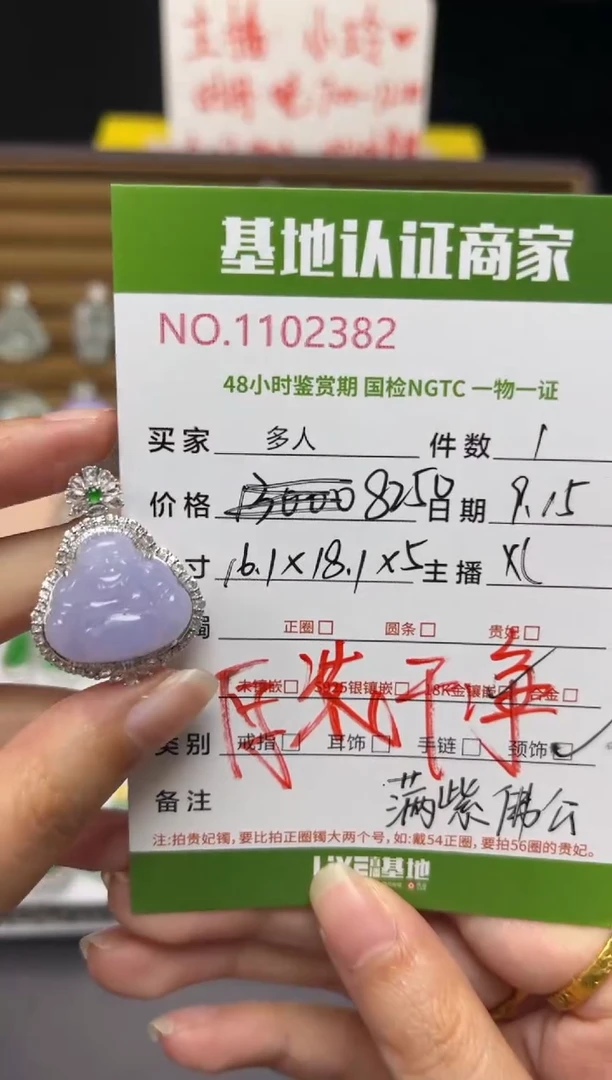 基地认证商家
NO.1102382
48小时鉴赏期 国检NGTC 一物一证
买家 多人 件数 1
价格 13000 8250 日期 9.15
寸 16.1×18.1×5 主播
正圈□ 圆条□ 贵妃□
未镶嵌□ S925银镶嵌□ 18K金镶嵌□ 合金□
干净
类别 戒指□ 耳饰□ 手链□ 颈饰□
备注 满紫佛公
注:拍贵妃镯,要比拍正圈镯大两个号,如:戴54正圈,要拍56圈的贵妃。
基地